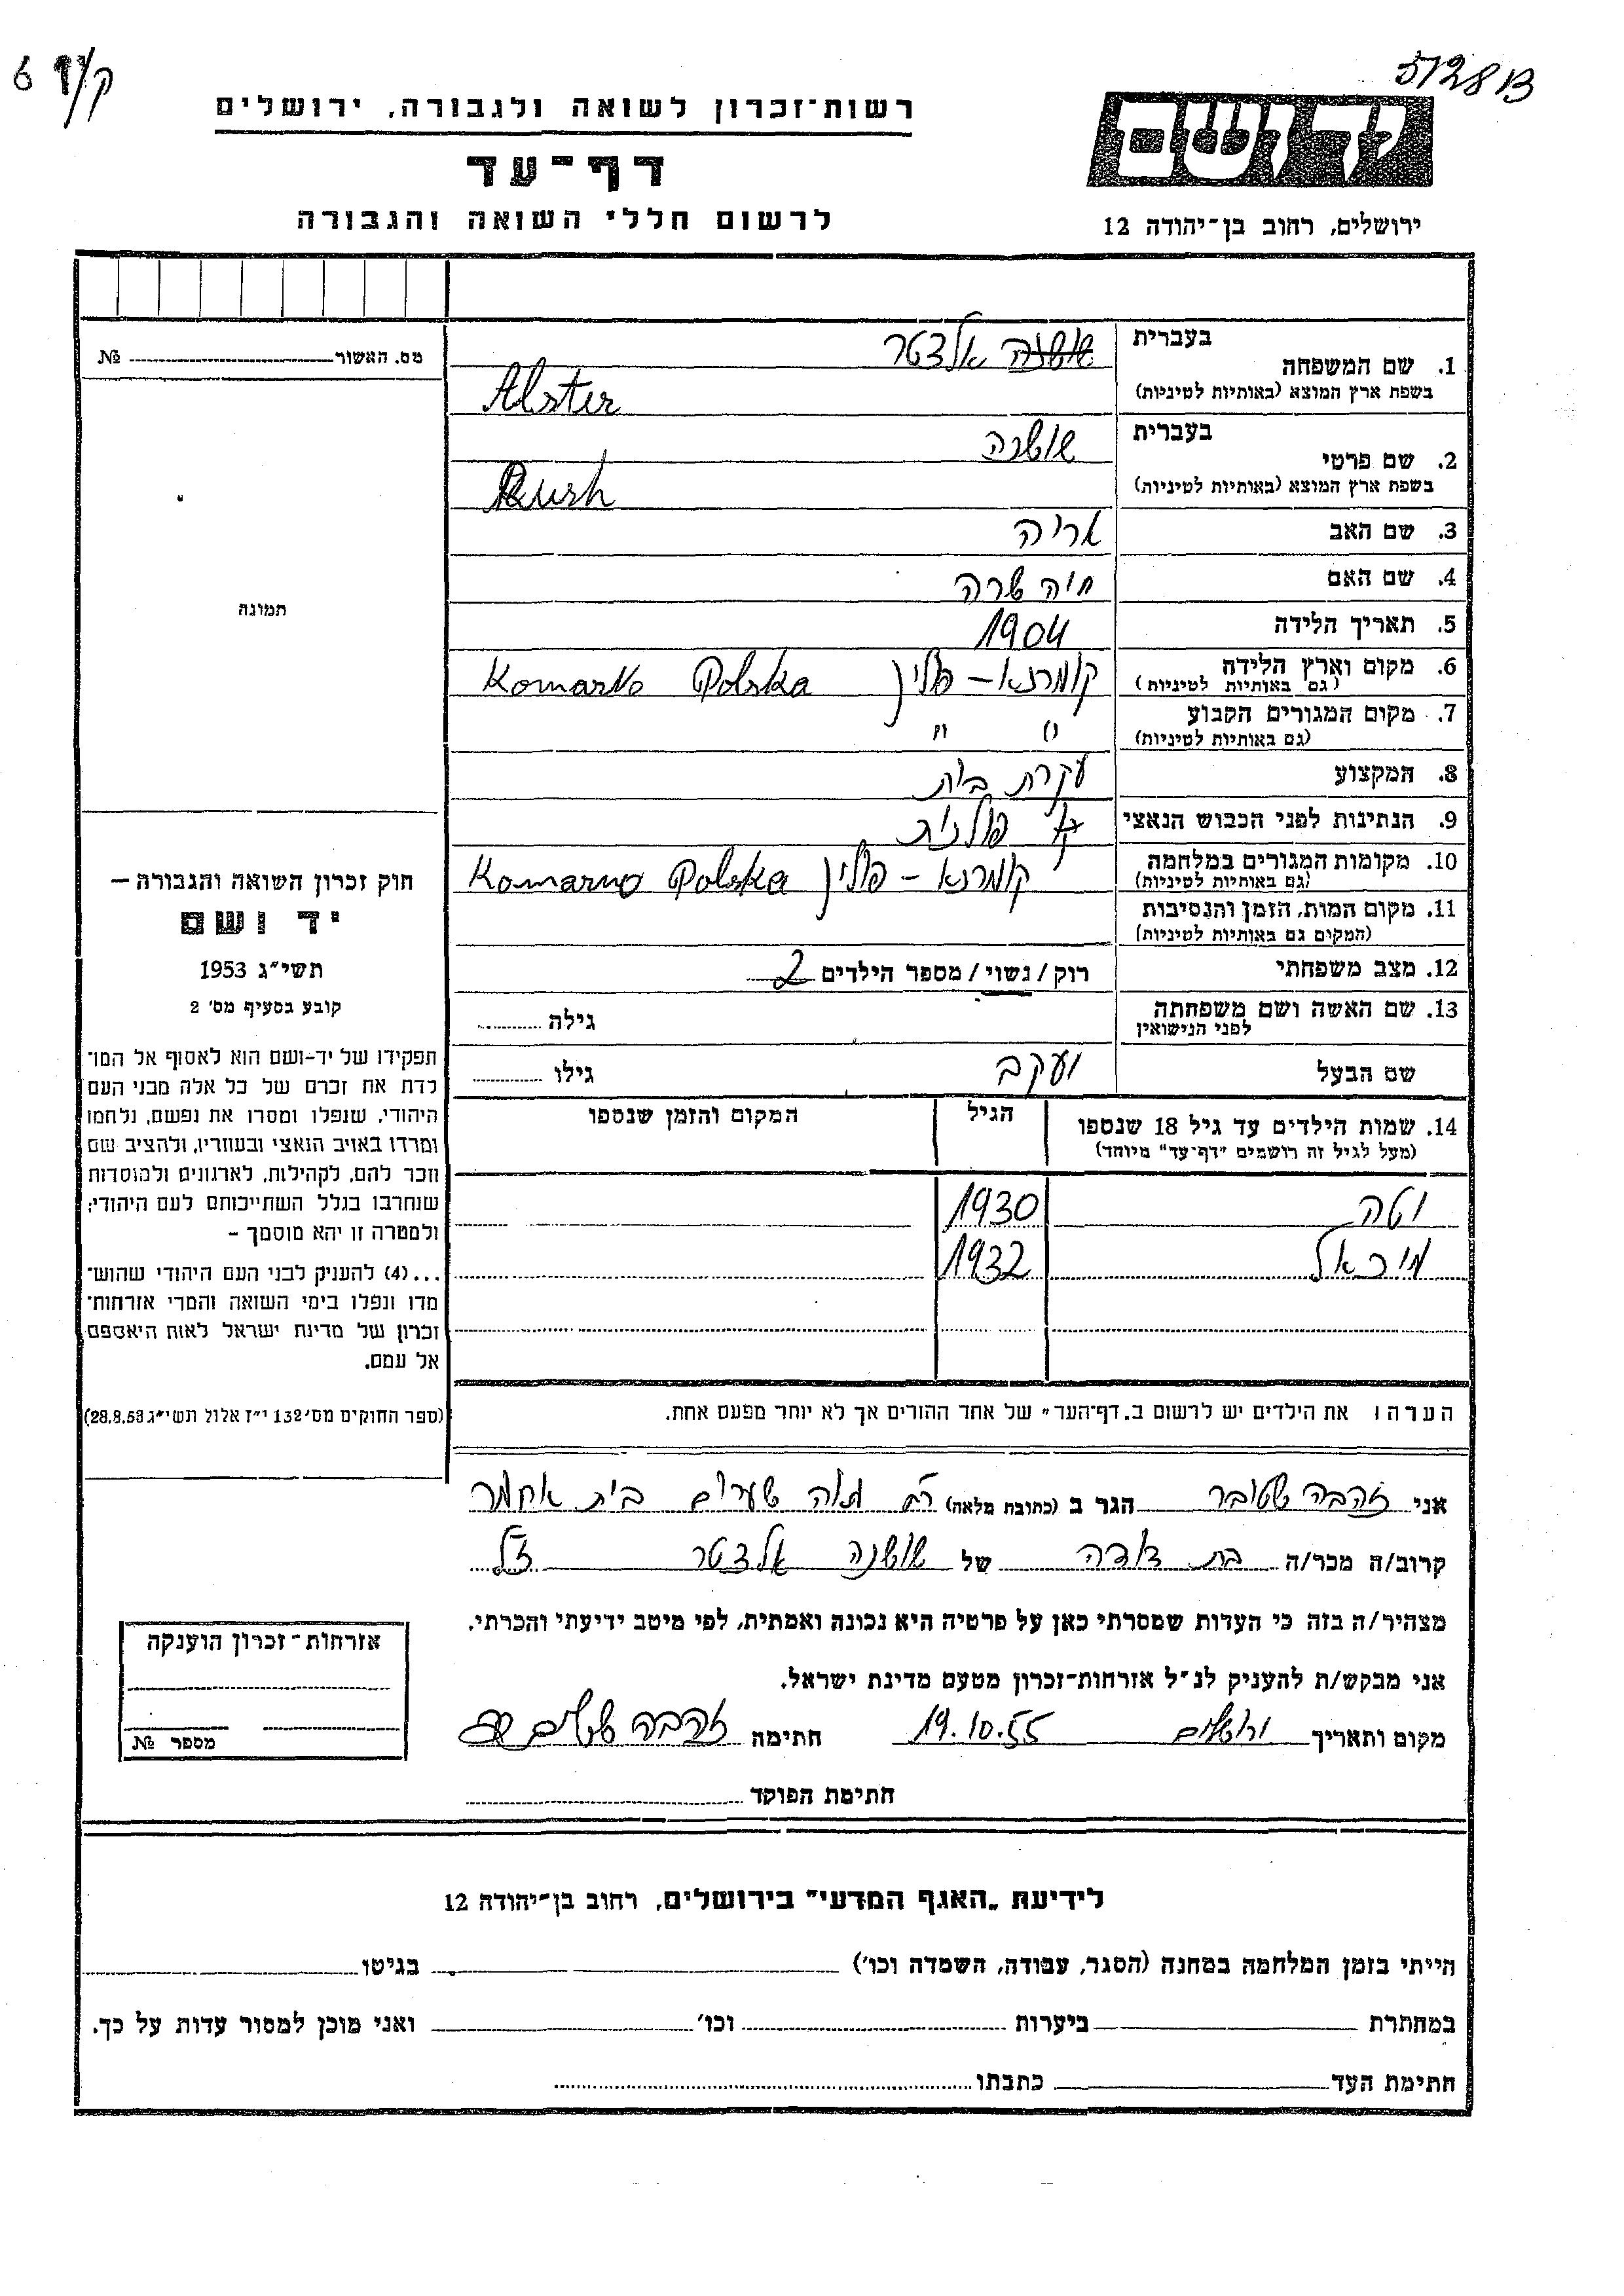 ק/ף 6
512813
רשות־זכרון לשואה ולגבורה, ירושלים
דף־עד
לרשום חללי השואה והגבורה
ירושלים, רחוב בן־יהודה 12
מס. האשור № 
בעברית שושנה אלצטר
1. שם המשפחה
בשפת ארץ המוצא (באותיות לטיניות) Alster
בעברית שושנה
2. שם פרטי
בשפת ארץ המוצא (באותיות לטיניות)
3. שם האב אריה
4. שם האם חיה שרה
5. תאריך הלידה 1904
6. מקום וארץ הלידה קומרנא – פולין Komarno Polska
(גם באותיות לטיניות)
7. מקום המגורים הקבוע " "
(גם באותיות לטיניות)
8. המקצוע עקרת בית
9. הנתינות לפני הכבוש הנאצי פולנית
10. מקומות המגורים במלחמה קומרנא – פולין Komarno Polska
(גם באותיות לטיניות)
11. מקום המות, הזמן והנסיבות
(המקום גם באותיות לטיניות)
12. מצב משפחתי רוק / נשוי / מספר הילדים 2
13. שם האשה ושם משפחתה גילה
לפני הנישואין
שם הבעל יעקב גילו
14. שמות הילדים עד גיל 18 שנספו הגיל המקום והזמן שנספו
(מעל לגיל זה רושמים "דף־עד" מיוחד)
יטה 1930
מיכאל 1932
הערה: את הילדים יש לרשום ב„דף־העד" של אחד ההורים אך לא יותר מפעם אחת.
תמונה
חוק זכרון השואה והגבורה –
יד ושם
תשי"ג 1953
קובע בסעיף מס' 2
תפקידו של יד־ושם הוא לאסוף אל המו־
לדת את זכרם של כל אלה מבני העם
היהודי, שנפלו ומסרו את נפשם, נלחמו
ומרדו באויב הנאצי ובעוזריו, ולהציב שם
וזכר להם, לקהילות, לארגונים ולמוסדות
שנחרבו בגלל השתייכותם לעם היהודי;
ולמטרה זו יהא מוסמך –
...(4) להעניק לבני העם היהודי שהוש־
מדו ונפלו בימי השואה והמרי אזרחות־
זכרון של מדינת ישראל לאות היאספם
אל עמם.
(ספר החוקים מס' 132 י"ז אלול תשי"ג 28.8.53)
אני זהבה שטובר הגר ב (כתובת מלאה) שערים בית
קרוב/ה מכר/ה בת דודה של שושנה אלצטר ז"ל
מצהיר/ה בזה כי העדות שמסרתי כאן על פרטיה היא נכונה ואמתית, לפי מיטב ידיעתי והכרתי.
אני מבקש/ת להעניק לנ"ל אזרחות־זכרון מטעם מדינת ישראל.
מקום ותאריך ירושלים 19.10.55 חתימה זהבה
חתימת הפוקד
אזרחות־זכרון הוענקה
מספר №
לידיעת „האגף המדעי" בירושלים, רחוב בן־יהודה 12
הייתי בזמן המלחמה במחנה (הסגר, עבודה, השמדה וכו') בגיטו
במחתרת ביערות וכו' ואני מוכן למסור עדות על כך.
חתימת העד כתבתו